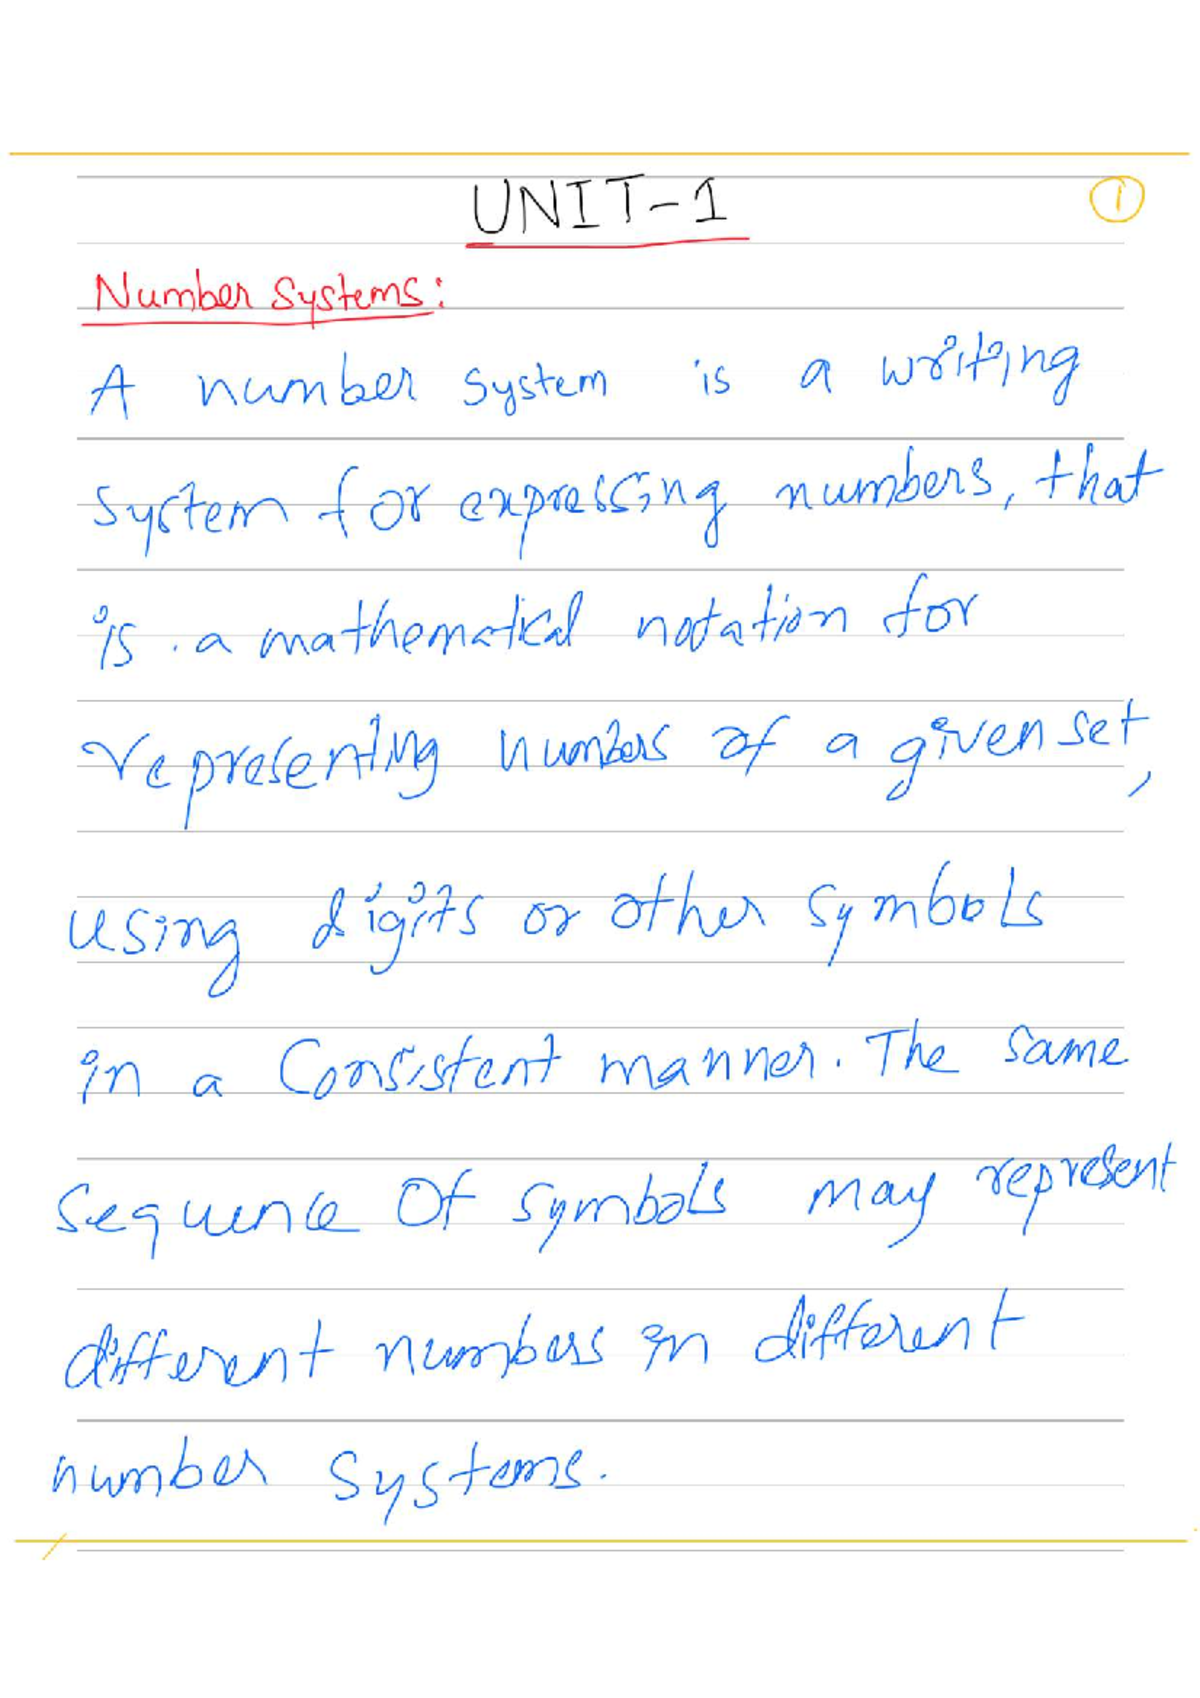 UNIT-1
1
Number Systems:
A number system is a writing
system for expressing numbers, that
is . a mathematical notation for
representing numbers of a given set,
using digits or other symbols
in a Consistent manner. The same
sequence Of symbols may represent
different numbers in different
number systems.